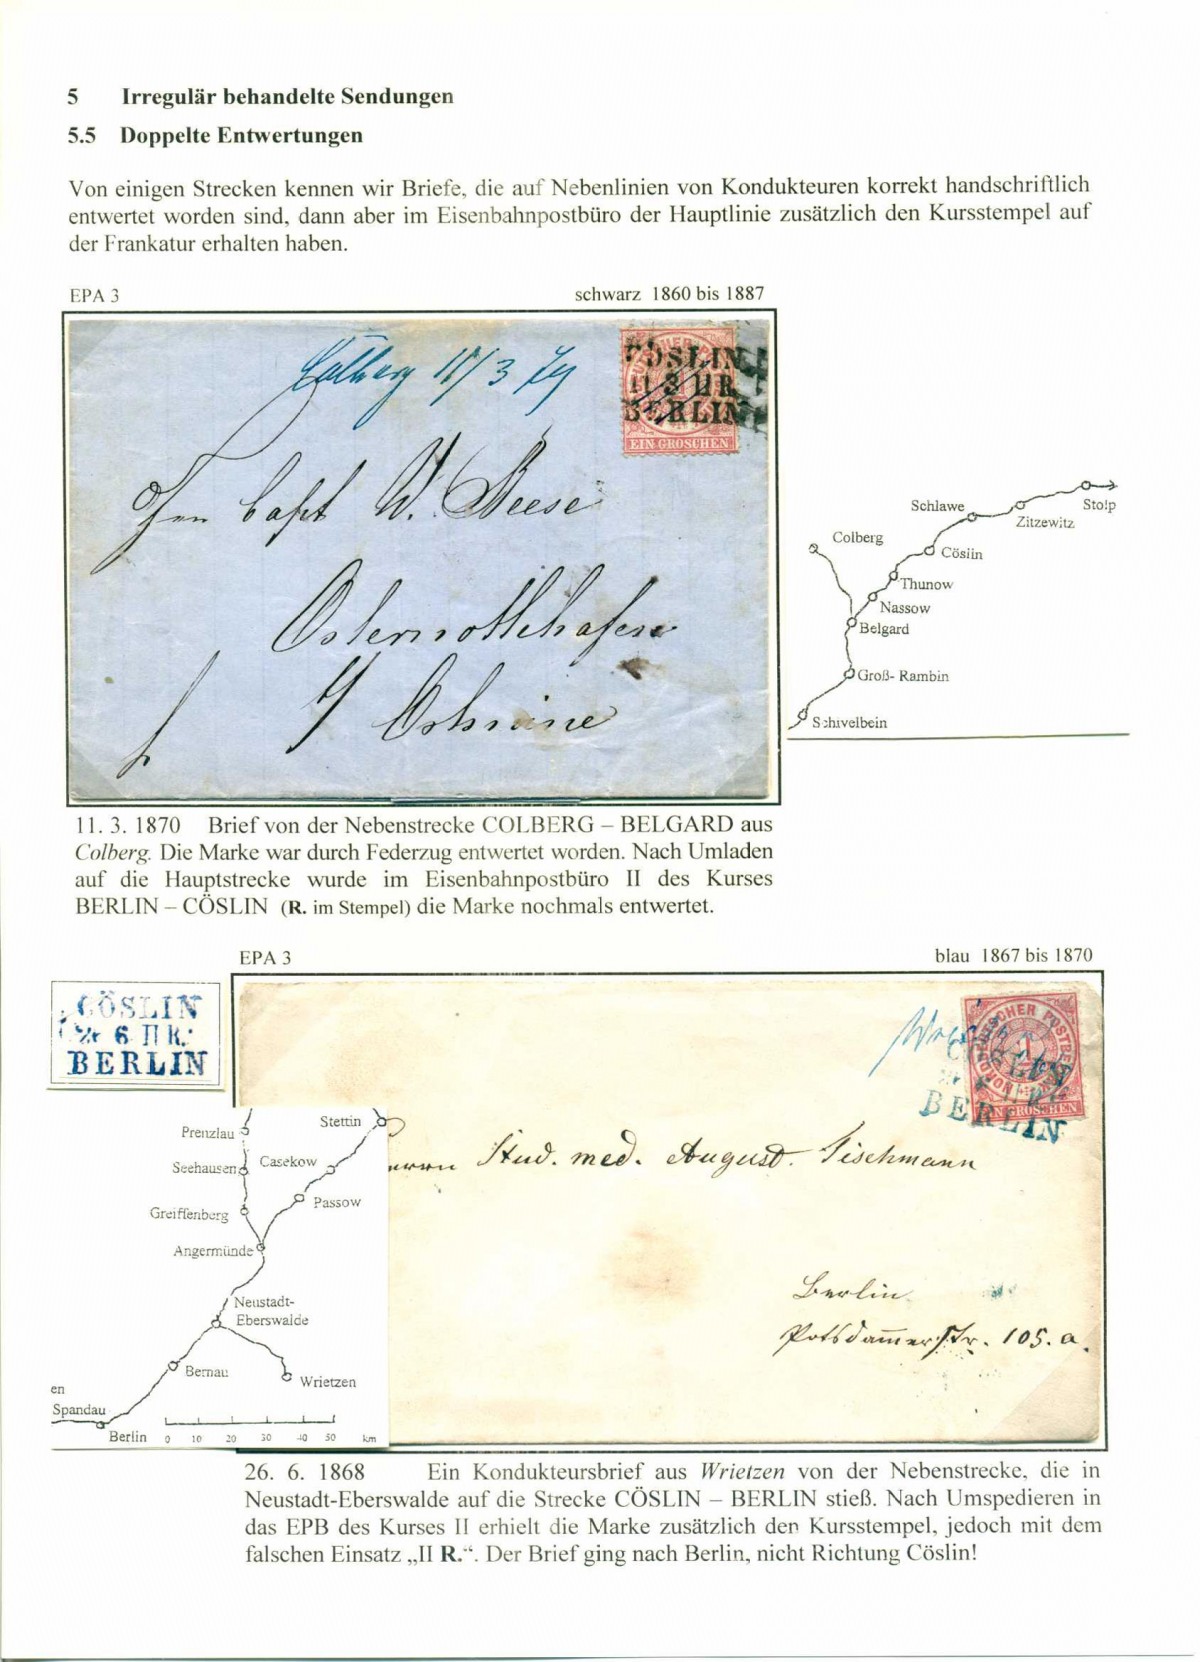 5 Irregulär behandelte Sendungen
5.5 Doppelte Entwertungen
Von einigen Strecken kennen wir Briefe, die auf Nebenlinien von Kondukteuren korrekt handschriftlich
entwertet worden sind, dann aber im Eisenbahnpostbüro der Hauptlinie zusätzlich den Kursstempel auf
der Frankatur erhalten haben.
EPA 3 schwarz 1860 bis 1887
Colberg 11/3 70
CÖSLIN
11 3 II R.
BERLIN
EIN GROSCHEN
Capt W. Beese
Osternothhafen
Schlawe
Stolp
Zitzewitz
Colberg
Cöslin
Thunow
Nassow
Belgard
Groß- Rambin
Schivelbein
11. 3. 1870 Brief von der Nebenstrecke COLBERG – BELGARD aus
Colberg. Die Marke war durch Federzug entwertet worden. Nach Umladen
auf die Hauptstrecke wurde im Eisenbahnpostbüro II des Kurses
BERLIN – CÖSLIN (R. im Stempel) die Marke nochmals entwertet.
EPA 3 blau 1867 bis 1870
CÖSLIN
6 II R.
BERLIN
NORDDEUTSCHER POSTBEZIRK
1
EIN GROSCHEN
BERLIN
Stud. med. August Tischmann
Berlin
Potsdamerstr. 105. a.
Prenzlau
Stettin
Seehausen
Casekow
Passow
Greiffenberg
Angermünde
Neustadt-
Eberswalde
Bernau
Wrietzen
en
Spandau
Berlin 0 10 20 30 40 50 km
26. 6. 1868 Ein Kondukteursbrief aus Wrietzen von der Nebenstrecke, die in
Neustadt-Eberswalde auf die Strecke CÖSLIN – BERLIN stieß. Nach Umspedieren in
das EPB des Kurses II erhielt die Marke zusätzlich den Kursstempel, jedoch mit dem
falschen Einsatz „II R.“. Der Brief ging nach Berlin, nicht Richtung Cöslin!